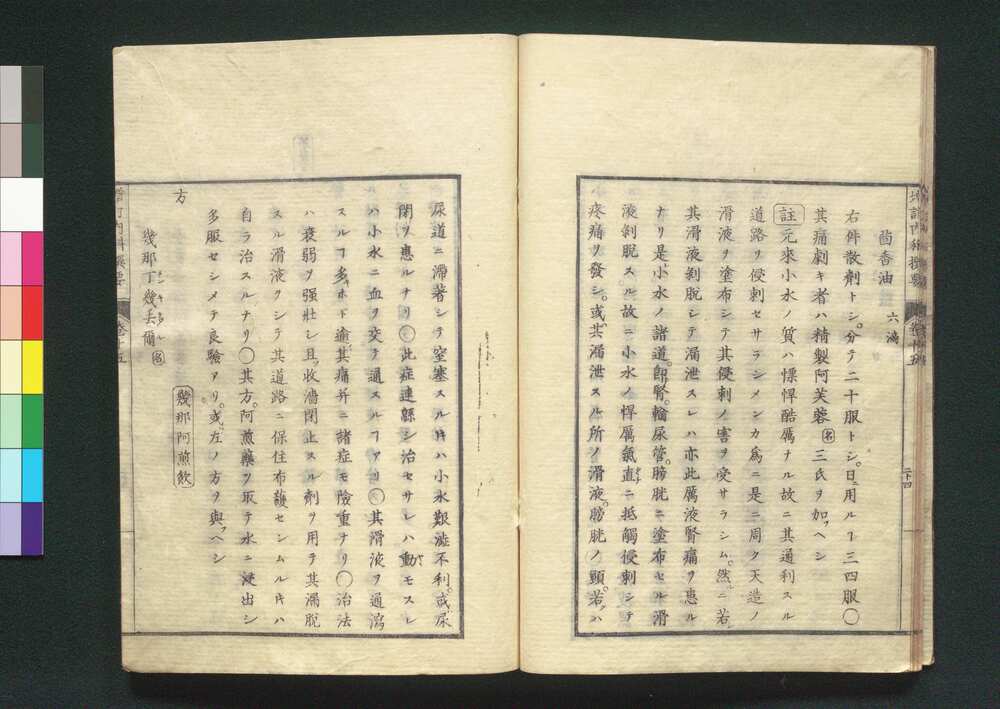 茴香油 六滴
右件散劑トシ。分テ二十服トシ。日ニ用ルヿ三四服〇
其痛劇キ者ハ精製阿芙蓉 名 三氏ヲ加フヘシ
註 元來小水ノ質ハ慓悍酷厲ナル故ニ其通利スル
道路ヲ侵刺セサラシメンカ爲ニ是ニ周ク天造ノ
滑液ヲ塗布シテ其侵刺ノ害ヲ受サラシム。然ルニ若シ
其滑液剝脫シテ漏泄スレハ亦此厲液腎痛ヲ患ル
ナリ是レ小水ノ諸道。卽チ腎。輸尿管。膀胱ニ塗布セル滑
液剝脫スル故ニ小水ノ悍厲氣直ニ抵觸侵刺シテ
疼痛ヲ發シ。或ハ其漏泄スル所ノ滑液。膀胱ノ頸。若クハ
增訂內科撰要 卷十五 二十四
尿道ニ滯著シテ窒塞スル片ハ小水艱澁不利。或ハ尿
閉ヲ患ルナリ〇此症連緜シ治セサレハ動モスレ
ハ小水ニ血ヲ交テ通スルヿアリ〇其滑液ヲ通瀉
スルヿ多ケレハ逾其痛幷ニ諸症モ險重ナリ〇治法
ハ衰弱ヲ强壯シ且ツ收濇閉止スル劑ヲ用テ其漏脫
スル滑液ヲシテ其道路ニ保住布護セシムル片ハ
自ラ治スルナリ〇其方。阿煎藥ヲ取テ水ニ浸出シ
多服セシメテ良驗ヲリ。或ハ左ノ方ヲ與フヘシ
方 幾那阿煎飮
幾那丁幾丢爾 名
增訂內科撰要 卷十五